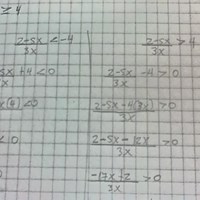 ≥ 4
2-5x/3x < -4
2-5x/3x > 4
5x + 4 < 0
2-5x/3x - 4 > 0
2-5x-4(3x)/3x > 0
< 0
2-5x-12x/3x > 0
-17x+2/3x > 0